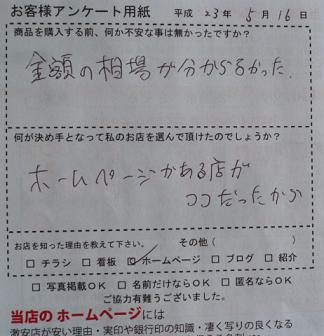 お客様アンケート用紙 平成 23年 5月 16日
商品を購入する前、何か不安な事は無かったですか?
金額の相場が分からなかった.
何が決め手となって私のお店を選んで頂けたのでしょうか?
ホームページがある店が
ココだったから
お店を知った理由を教えて下さい。 その他( )
□ チラシ □ 看板 ☑ ホームページ □ ブログ □ 紹介
□ 写真掲載OK □ 名前だけならOK □ 匿名ならOK
ご協力有難うございました。
当店のホームページには
激安店が安い理由・実印や銀行印の知識・凄く写りの良くなる